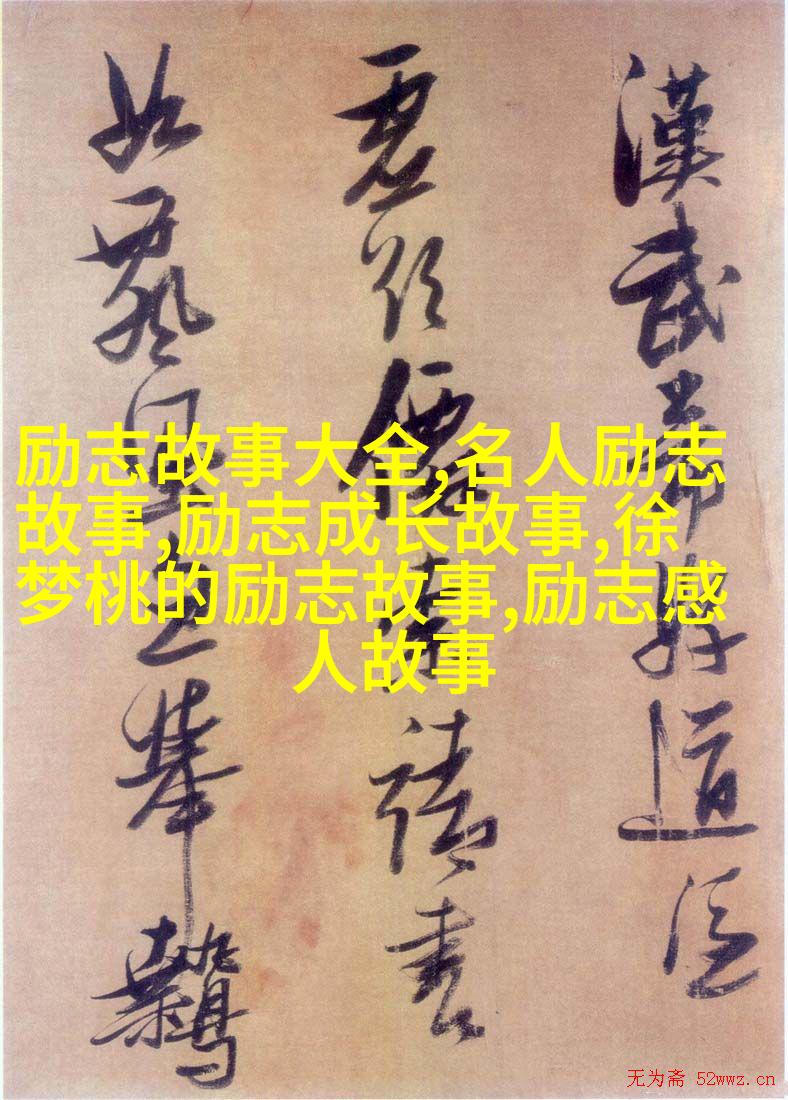 漢武帝好道
請書
如風舉
励志故事大全,名人励志
故事,励志成长故事,徐
梦桃的励志故事,励志感
人故事
无为斋 52wwz.cn